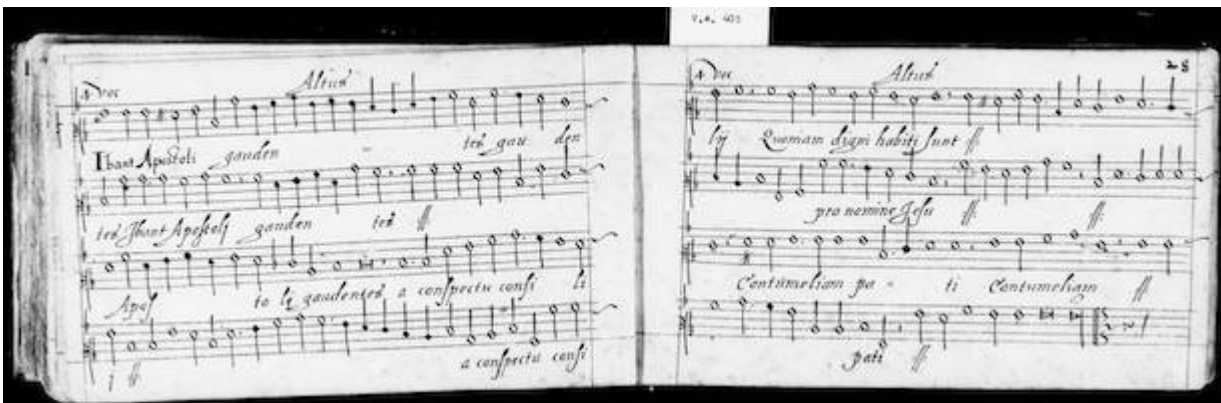 V.a. 403
4 voc Altus
Ibant Apostoli gauden tes gau den
tes Ibant Apostolj gauden tes ij
Apos to lj gaudentes a conspectu consi li
j ij a conspectu consi
4 voc Altus 28
lij Quoniam digni habiti sunt ij
pro nomine Jesu ij ij
Contumeliam pa - ti Contumeliam ij
pati ij